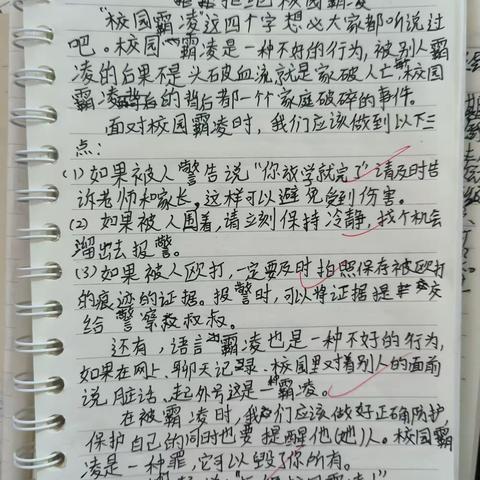 拒绝校园霸凌
"校园霸凌"这四个字想必大家都听说过
吧。校园霸凌是一种不好的行为,被别人霸
凌的后果不是头破血流就是家破人亡,校园
霸凌的背后都一个家庭破碎的事件。
面对校园霸凌时,我们应该做到以下三
点:
(1)如果被人警告说"你放学就完了"请及时告
诉老师和家长,这样可以避免受到伤害。
(2) 如果被人围着,请立刻保持冷静,找个机会
溜出去报警。
(3)如果被人欧打,一定要及时拍照保存被欧打
的痕迹的证据。报警时,可以将证据提交
给警察叔叔。
还有,语言霸凌也是一种不好的行为,
如果在网上、聊天记录、校园里对着别人的面前
说脏话、起外号这是一种霸凌。
在被霸凌时,我们应该做好正确防护
保护自己的同时也要提醒他(她)人。校园霸
凌是一种罪,它可以毁了你所有。